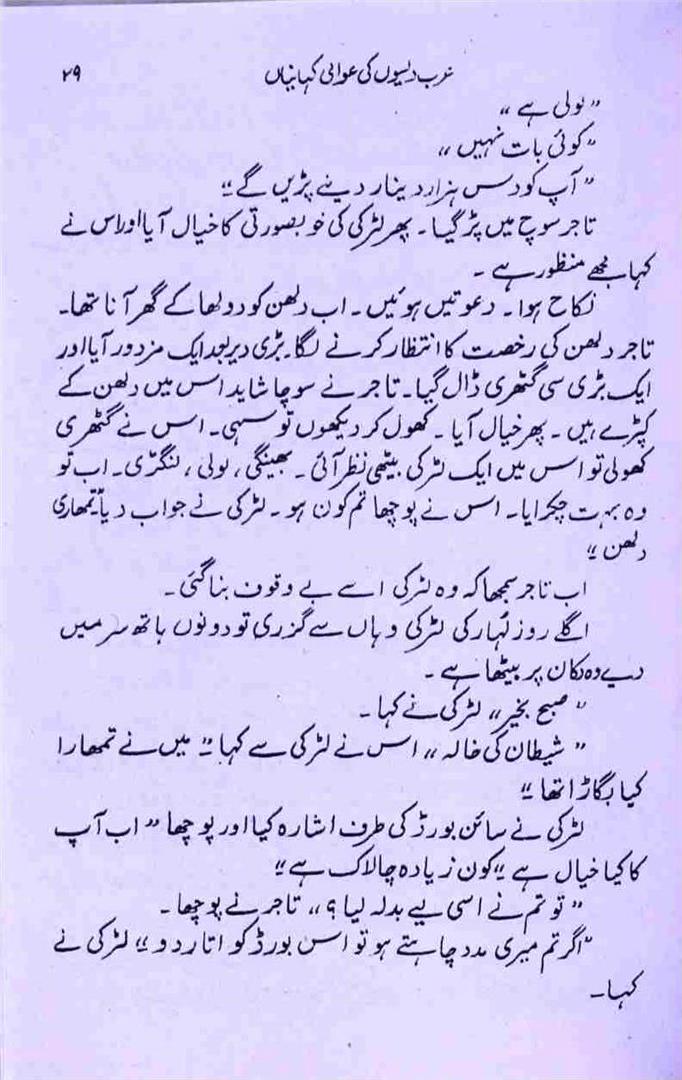 عرب دیسوں کی عوامی کہانیاں ۲۹
”لولی ہے“
”کوئی بات نہیں“
”آپ کو دس ہزار دینار دینے پڑیں گے“
تاجر سوچ میں پڑ گیا۔ پھر لڑکی کی خوبصورتی کا خیال آیا اور اس نے
کہا مجھے منظور ہے۔
نکاح ہوا۔ دعوتیں ہوئیں۔ اب دلھن کو دولھا کے گھر آنا تھا۔
تاجر دلھن کی رخصت کا انتظار کرنے لگا۔ بڑی دیر بعد ایک مزدور آیا اور
ایک بڑی سی گٹھری ڈال گیا۔ تاجر نے سوچا شاید اس میں دلھن کے
کپڑے ہیں۔ پھر خیال آیا۔ کھول کر دیکھوں تو سہی۔ اس نے گٹھری
کھولی تو اس میں ایک لڑکی بیٹھی نظر آئی۔ بھینگی، لولی، لنگڑی۔ اب تو
وہ بہت چکرایا۔ اس نے پوچھا تم کون ہو۔ لڑکی نے جواب دیا ”تمھاری
دلھن“
اب تاجر سمجھا کہ وہ لڑکی اسے بے وقوف بنا گئی۔
اگلے روز لُہار کی لڑکی وہاں سے گزری تو دونوں ہاتھ سر میں
دیے وہ دکان پر بیٹھا ہے۔
”صبح بخیر“ لڑکی نے کہا۔
”شیطان کی خالہ“ اس نے لڑکی سے کہا ”میں نے تمھارا
کیا بگاڑا تھا“
لڑکی نے سائن بورڈ کی طرف اشارہ کیا اور پوچھا ”اب آپ
کا کیا خیال ہے“ کون زیادہ چالاک ہے“
”تو تم نے اسی لیے بدلہ لیا؟“ تاجر نے پوچھا۔
”اگر تم میری مدد چاہتے ہو تو اس بورڈ کو اتار دو“ لڑکی نے
کہا۔